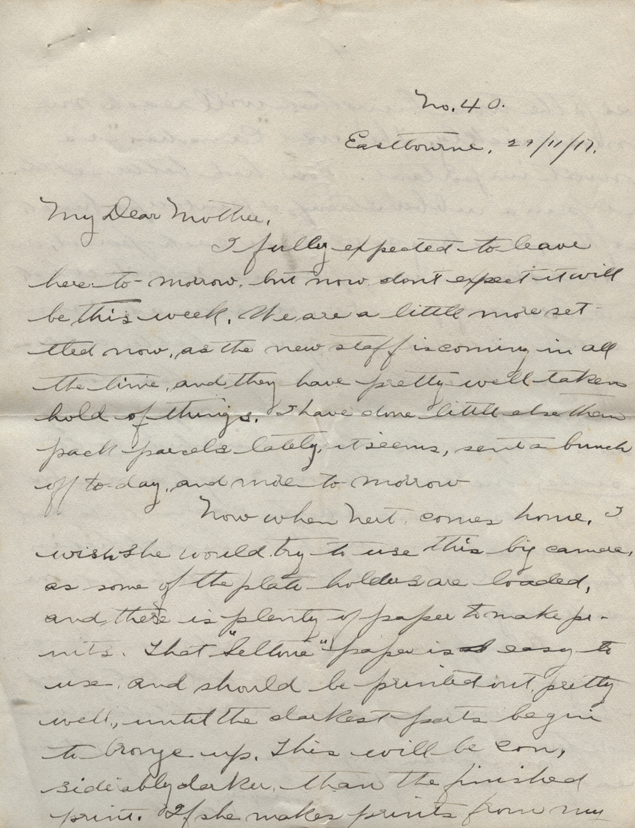 No. 40.
Eastbourne, 27/11/17.
My Dear Mother,
I fully expected to leave
here to-morrow, but now don't expect it will
be this week. We are a little more set-
tled now, as the new staff is coming in all
the time, and they have pretty well taken
hold of things. I have done little else than
pack parcels lately, it seems, sent a bunch
off to-day, and more to morrow
Now when comes home, I
wish she would try to use this big camera,
as some of the plate holders are loaded,
and there is plenty of paper to make pr-
nits. That "Seltone" paper is easy to
use, and should be printed out pretty
well, until the darkest parts begin
to bronze up. This will be con,
siderably darker, than the finished
print. If she makes prints from my